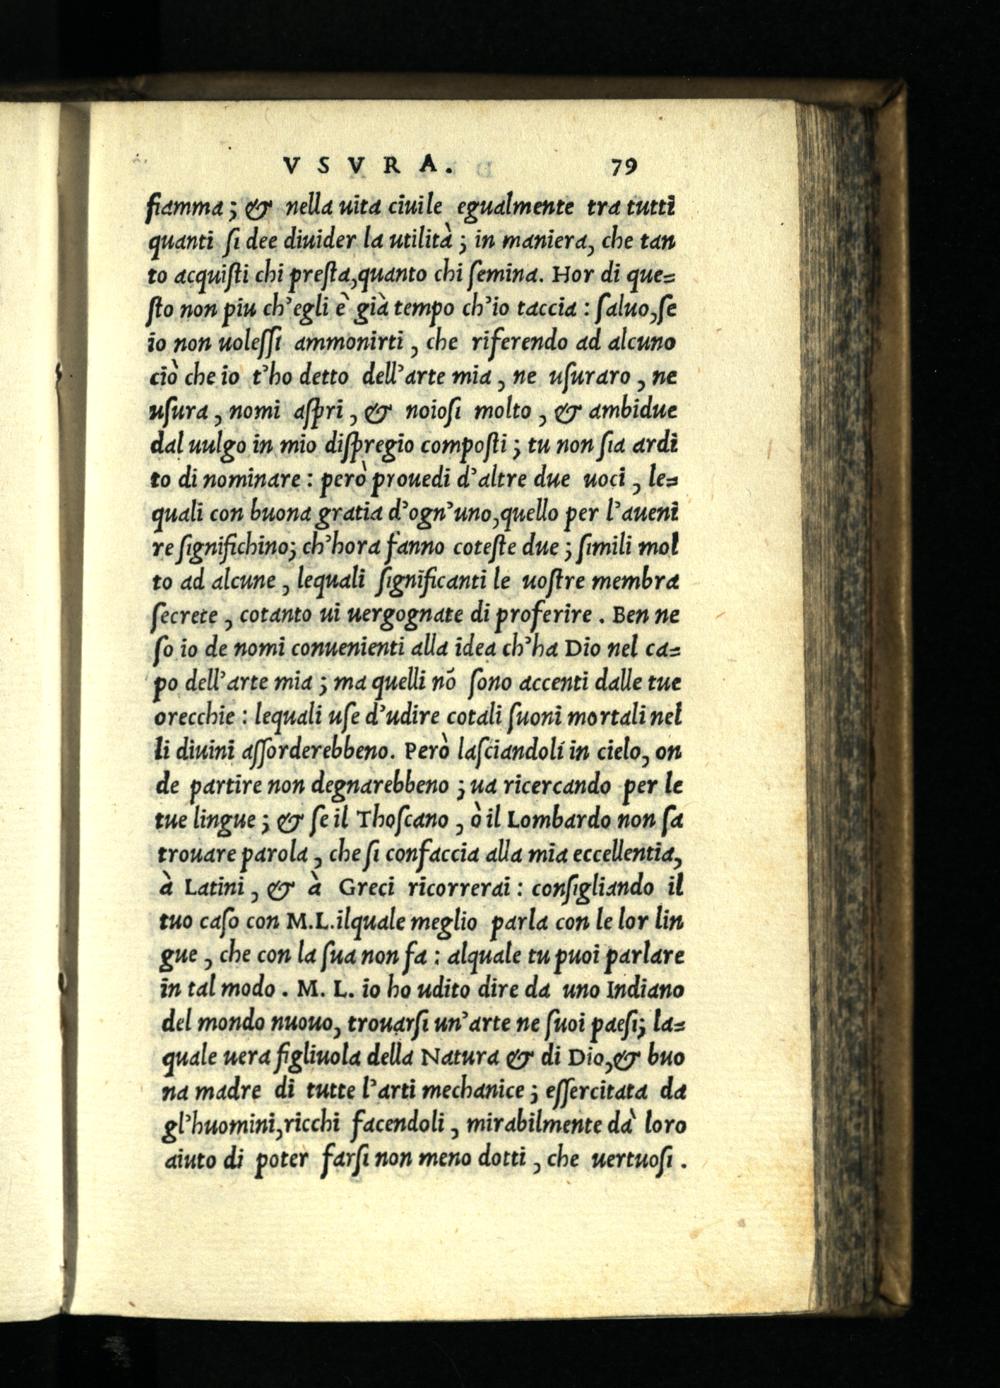 VSVRA. 79
fiamma; & nella uita ciuile egualmente tra tutti
quanti ſi dee diuider la utilità; in maniera, che tan
to acquiſti chi preſta, quanto chi ſemina. Hor di que=
ſto non piu ch'egli è già tempo ch'io taccia: ſaluo, ſe
io non uoleſſi ammonirti, che riferendo ad alcuno
ciò che io t'ho detto dell'arte mia, ne uſuraro, ne
uſura, nomi aſpri, & noioſi molto, & ambidue
dal uulgo in mio diſpregio compoſti; tu non ſia ardi
to di nominare: però prouedi d'altre due uoci, le=
quali con buona gratia d'ogn'uno, quello per l'aueni
re ſignifichino; ch'hora fanno coteſte due; ſimili mol
to ad alcune, lequali ſignificanti le uoſtre membra
ſecrete, cotanto ui uergognate di proferire. Ben ne
ſo io de nomi conuenienti alla idea ch'ha Dio nel ca=
po dell'arte mia; ma quelli nõ ſono accenti dalle tue
orecchie: lequali uſe d'udire cotali ſuoni mortali nel
li diuini aſſorderebbeno. Però laſciandoli in cielo, on
de partire non degnarebbeno; ua ricercando per le
tue lingue; & ſe il Thoſcano, ò il Lombardo non ſa
trouare parola, che ſi confaccia alla mia eccellentia,
à Latini, & à Greci ricorrerai: conſigliando il
tuo caſo con M.L. ilquale meglio parla con le lor lin
gue, che con la ſua non fa: alquale tu puoi parlare
in tal modo. M. L. io ho udito dire da uno Indiano
del mondo nuouo, trouarſi un'arte ne ſuoi paeſi; la=
quale uera figliuola della Natura & di Dio, & buo
na madre di tutte l'arti mechanice; eſſercitata da
gl'huomini, ricchi facendoli, mirabilmente dà loro
aiuto di poter farſi non meno dotti, che uertuoſi.